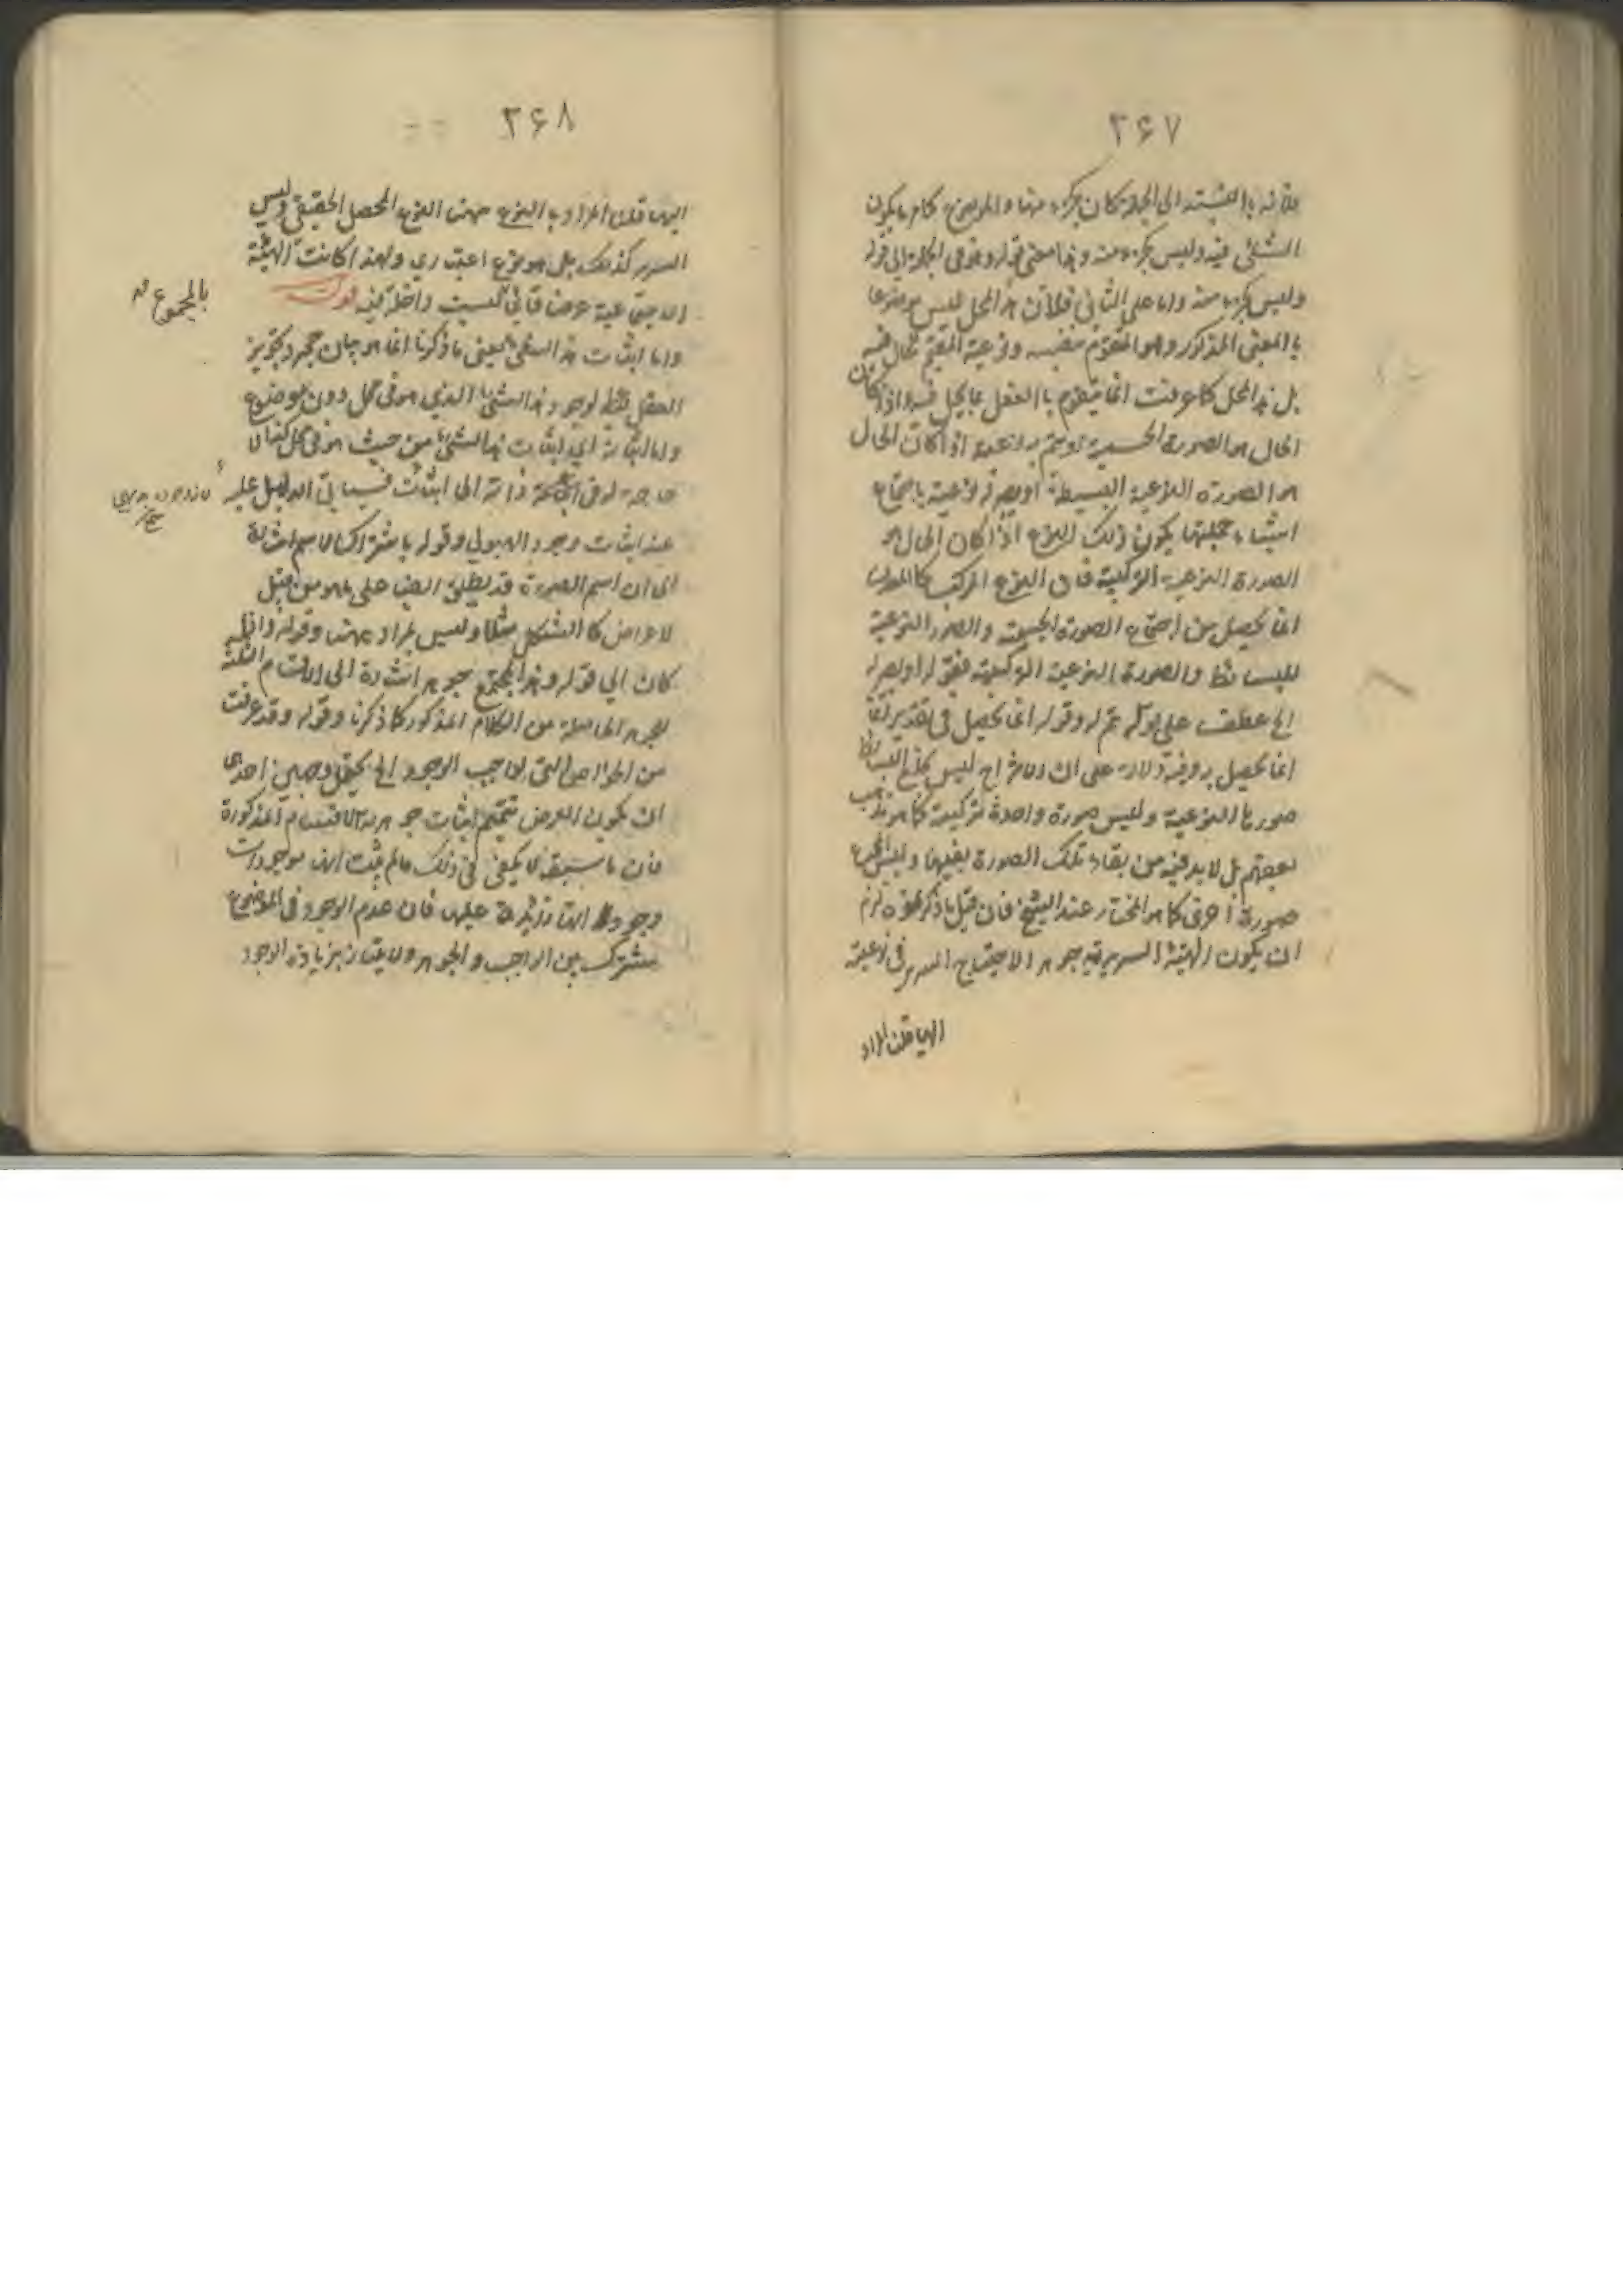 ۲۶۷
فلأنه بالنسبة الى الجملة كان كجزء منها والموضوع كلما يكون
الشئ فيه وليس بجزء منه وهذا معنى قوله وهو فى الجملة الى قوله
وليس بجزء منه واما على الثانى فلأن هذا المحل ليس موضوعا
بالمعنى المذكور وهو المتقوم بنفسه ونوعيته المقيم لما حل فيه
بل هذا المحل كما عرفت انما يتقوم بالفعل بما يحل فيه اذا كان
الحال هو الصورة الجسمية او يتم به نوعيته اذا كان الحال
هو الصورة النوعية البسيطة او يصير نوعية باجتماع
اشياء جملتها يكون ذلك النوع اذا كان الحال هو
الصورة النوعية التركيبية فان النوع المركب كالمعدن
انما يحصل من اجتماع الصورة الجسمية والصور النوعية
للبسائط والصورة النوعية التركيبية فقوله او يصير
الخ عطف على قوله يتم له وقوله انما يحصل فى تقدير
انما يحصل به وفيه دلالة على ان الامتزاج ليس بخلع البسائط
صورها النوعية ولبس صورة واحدة تركيبية كما هو مذهب
بعضهم بل لا بد فيه من بقاء تلك الصورة بعينها ولبس المجموع
صورة اخرى كما هو المختار عند الشيخ فان قيل ما ذكرتموه لزم
ان يكون الهيئة السريرية جوهرا لاحتياج السرير فى نوعيته
اليها قلنا المراد
۲۶۸
اليها قلنا المراد بالنوع ههنا النوع المحصل الحقيقى وليس
السرير كذلك بل هو نوع اعتبارى ولهذا كانت الهيئة
الاجتماعية عرضا قائما ليست داخلة فيه قوله
بالمجموع
واما اثبات هذا الشئ يعنى ما ذكرنا انما هو بيان مجرد تجويز
العقل فقط لوجود هذا الشئ الذى هو فى محل دون موضوع
واما اثبات اى اثبات هذا الشئ من حيث هو فى محل كذا لا
حاجة له فى ذاته الى اثبات فسيأتى الدليل عليه
عند اثبات وجود الهيولى وقوله باشتراك الاسم اشارة
الى ان اسم الصورة قد يطلق ايضا على ما هو من قبيل
الاعراض كالشكل مثلا وليس بمراد ههنا وقوله واذا
كان الى قوله وهذا المجتمع جوهر اشارة الى الاقسام الثلثة
للجوهر الحاصلة من الكلام المذكور كما ذكرنا وقوله وقد عرفت
من الخواص التى لواجب الوجود الخ يحتمل وجهين احدهما
ان يكون الغرض تتميم اثبات جوهرية الاقسام المذكورة
فان ما سبق لا يكفى فى ذلك ما لم يثبت انها موجودات
وجوداتها زائدة عليها فان عدم الوجود فى الموضوع
مشترك بين الواجب والجوهر ولا يمتاز بزيادة الوجود